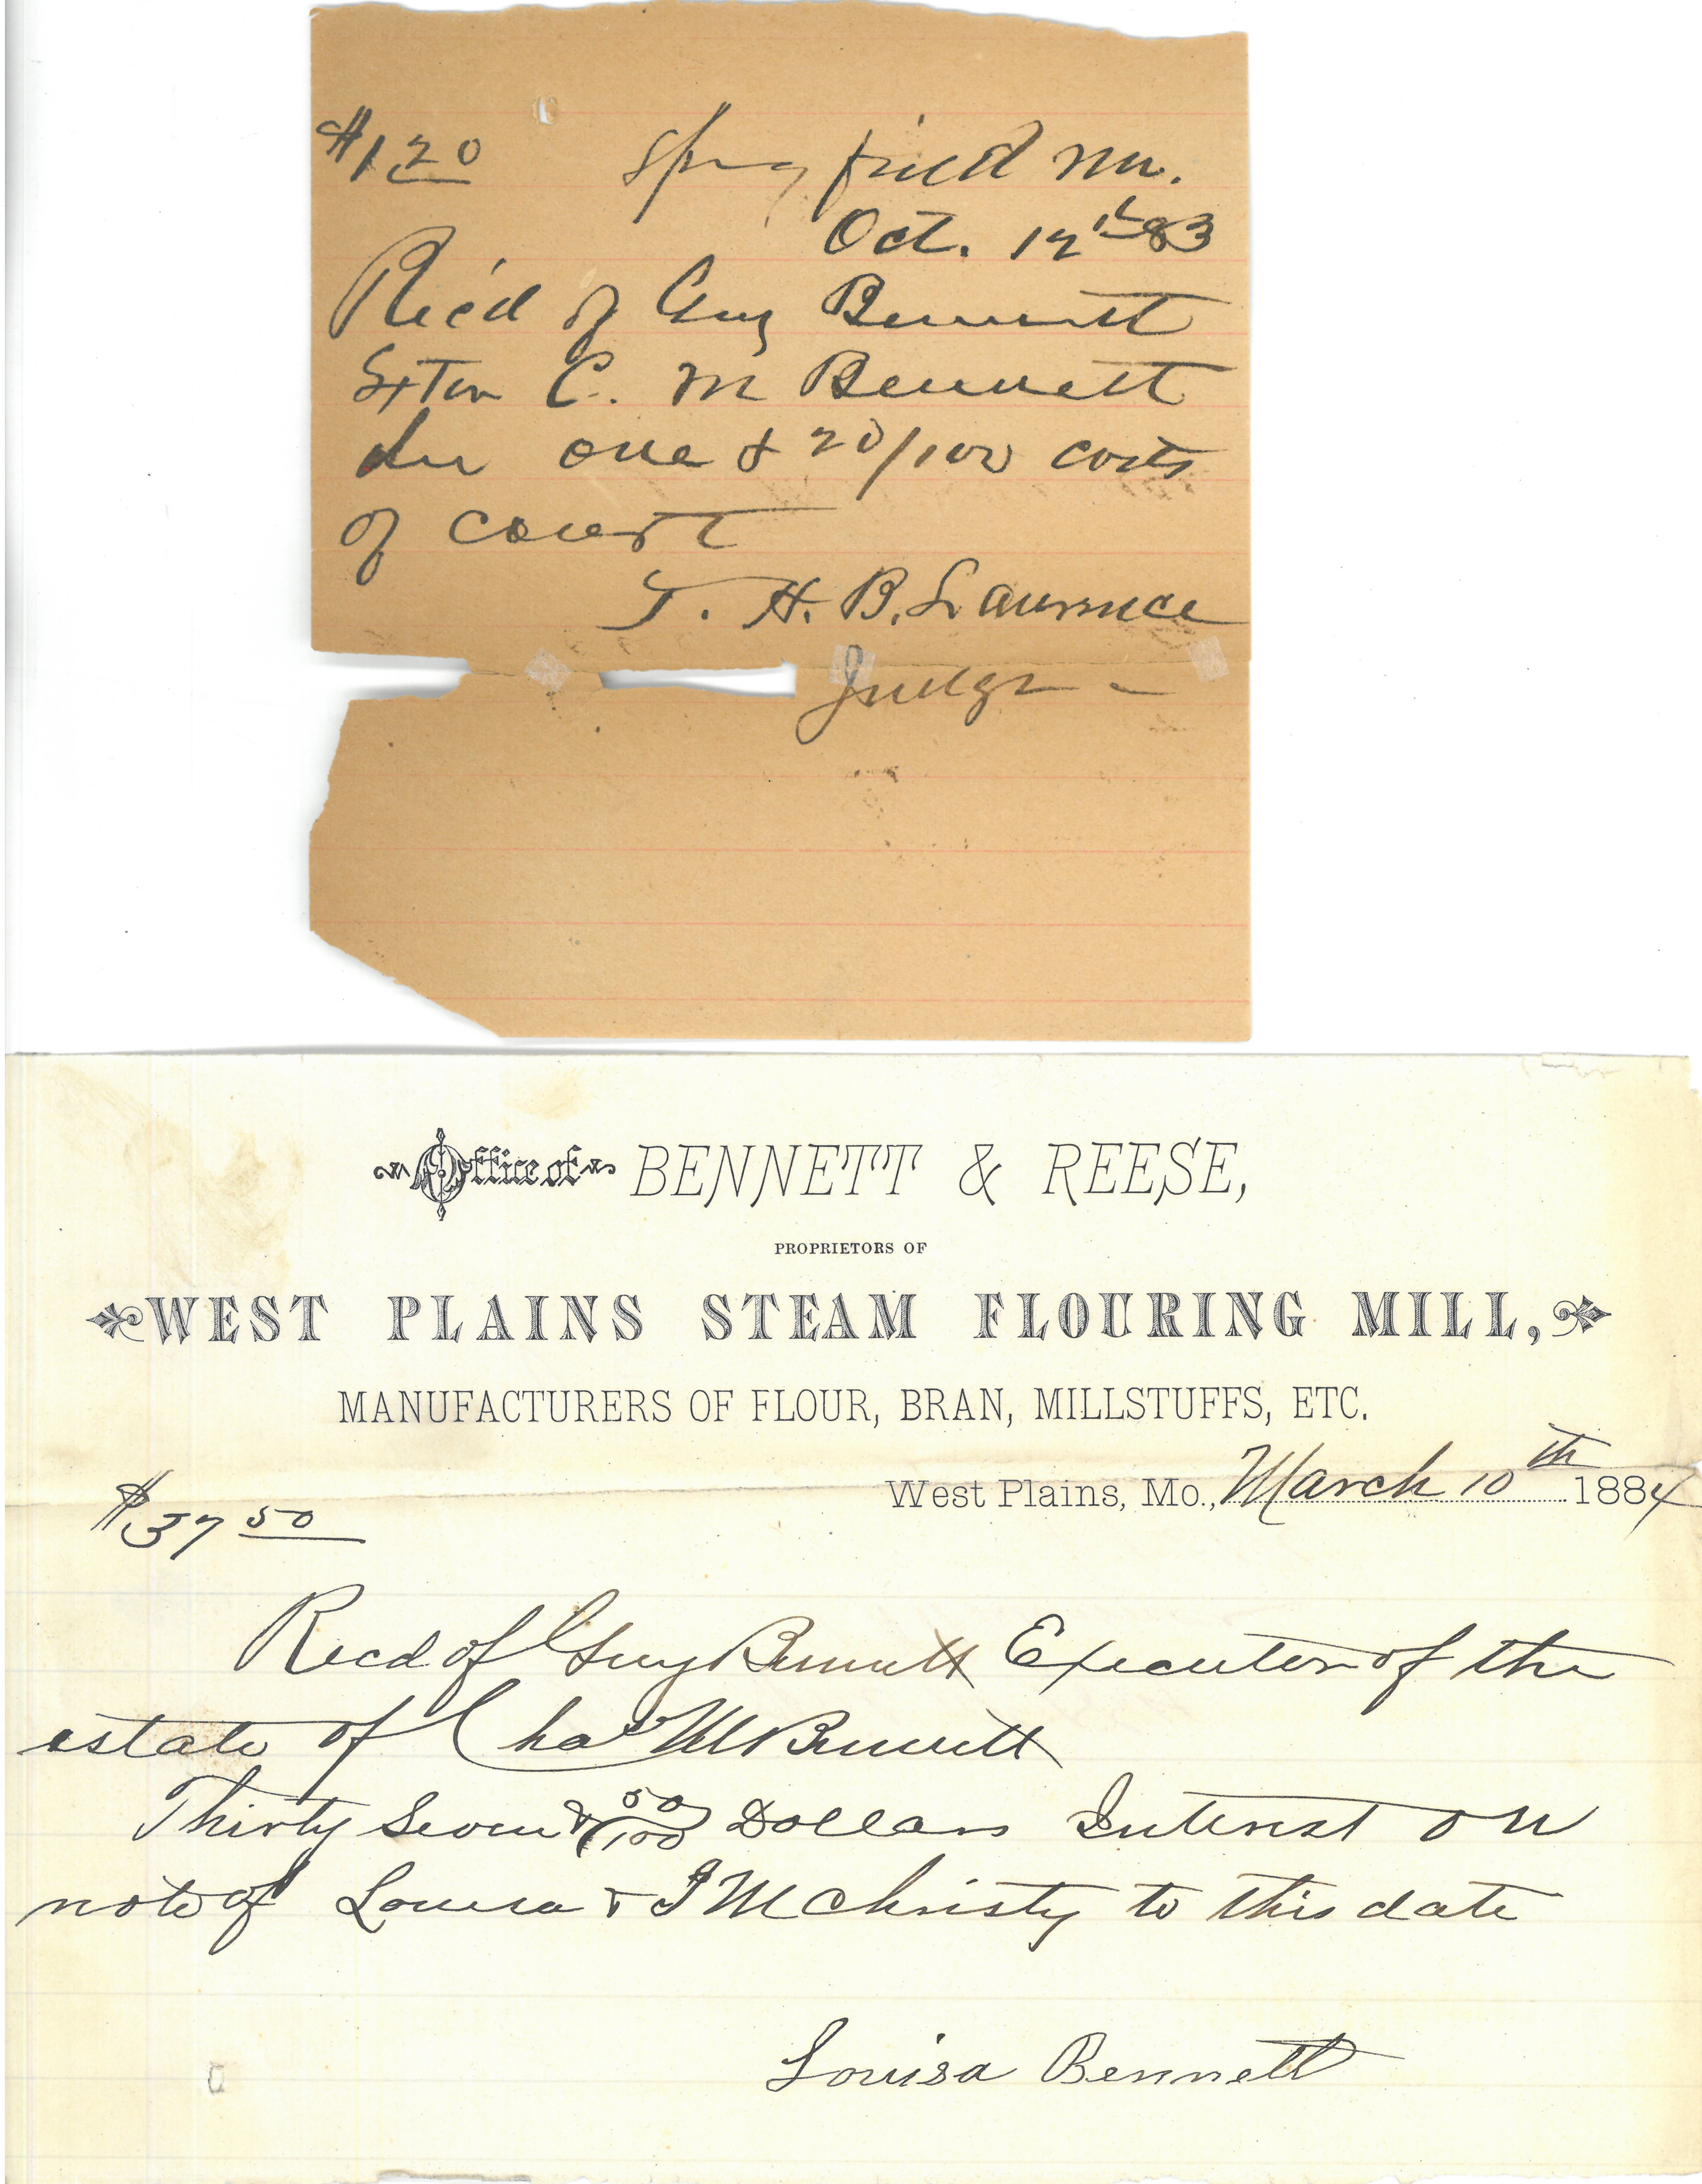 $1 20 Springfield Mo.
Oct. 12th 83
Rec'd of Guy Bennett
Extor C. M Bennett
for one & 20/100 costs
of court
T. H. B. Lawrence
Judge -
Office of BENNETT & REESE,
PROPRIETORS OF
WEST PLAINS STEAM FLOURING MILL,
MANUFACTURERS OF FLOUR, BRAN, MILLSTUFFS, ETC.
West Plains, Mo., March 10th 1884
$37 50
Recd of Guy Bennett Executor of the
estate of Chas M Bennett
Thirty Seven & 50/100 Dollars Interest on
note of Louisa & J M Christy to this date
Louisa Bennett